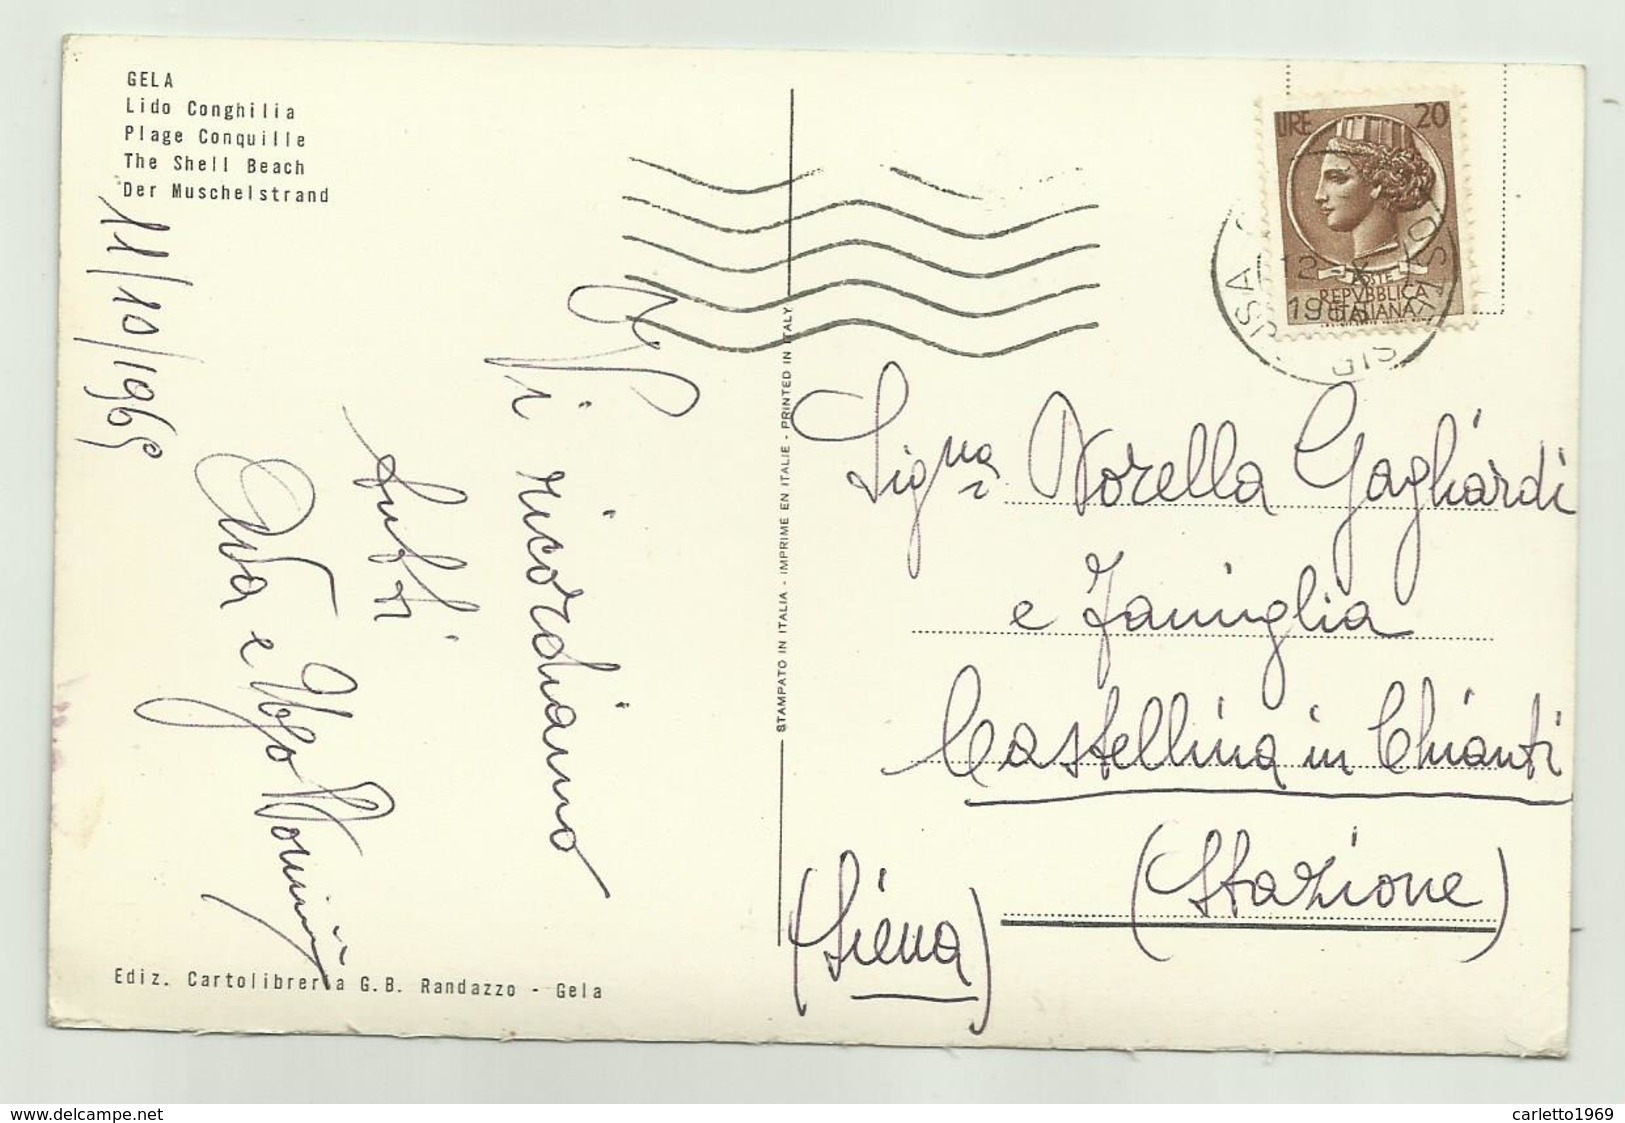 GELA
Lido Conghilia
Plage Conquille
The Shell Beach
Der Muschelstrand
11/10/1965
Vi ricordiamo
tutti
e Ugo
STAMPATO IN ITALIA - IMPRIME EN ITALIE - PRINTED IN ITALY
LIRE 20
POSTE
REPVBBLICA
ITALIANA
12 X
Sig.na Norella Gagliardi
e Famiglia
Castellina in Chianti
(Stazione)
(Siena)
Ediz. Cartolibreria G.B. Randazzo - Gela
www.delcampe.net
carletto1969